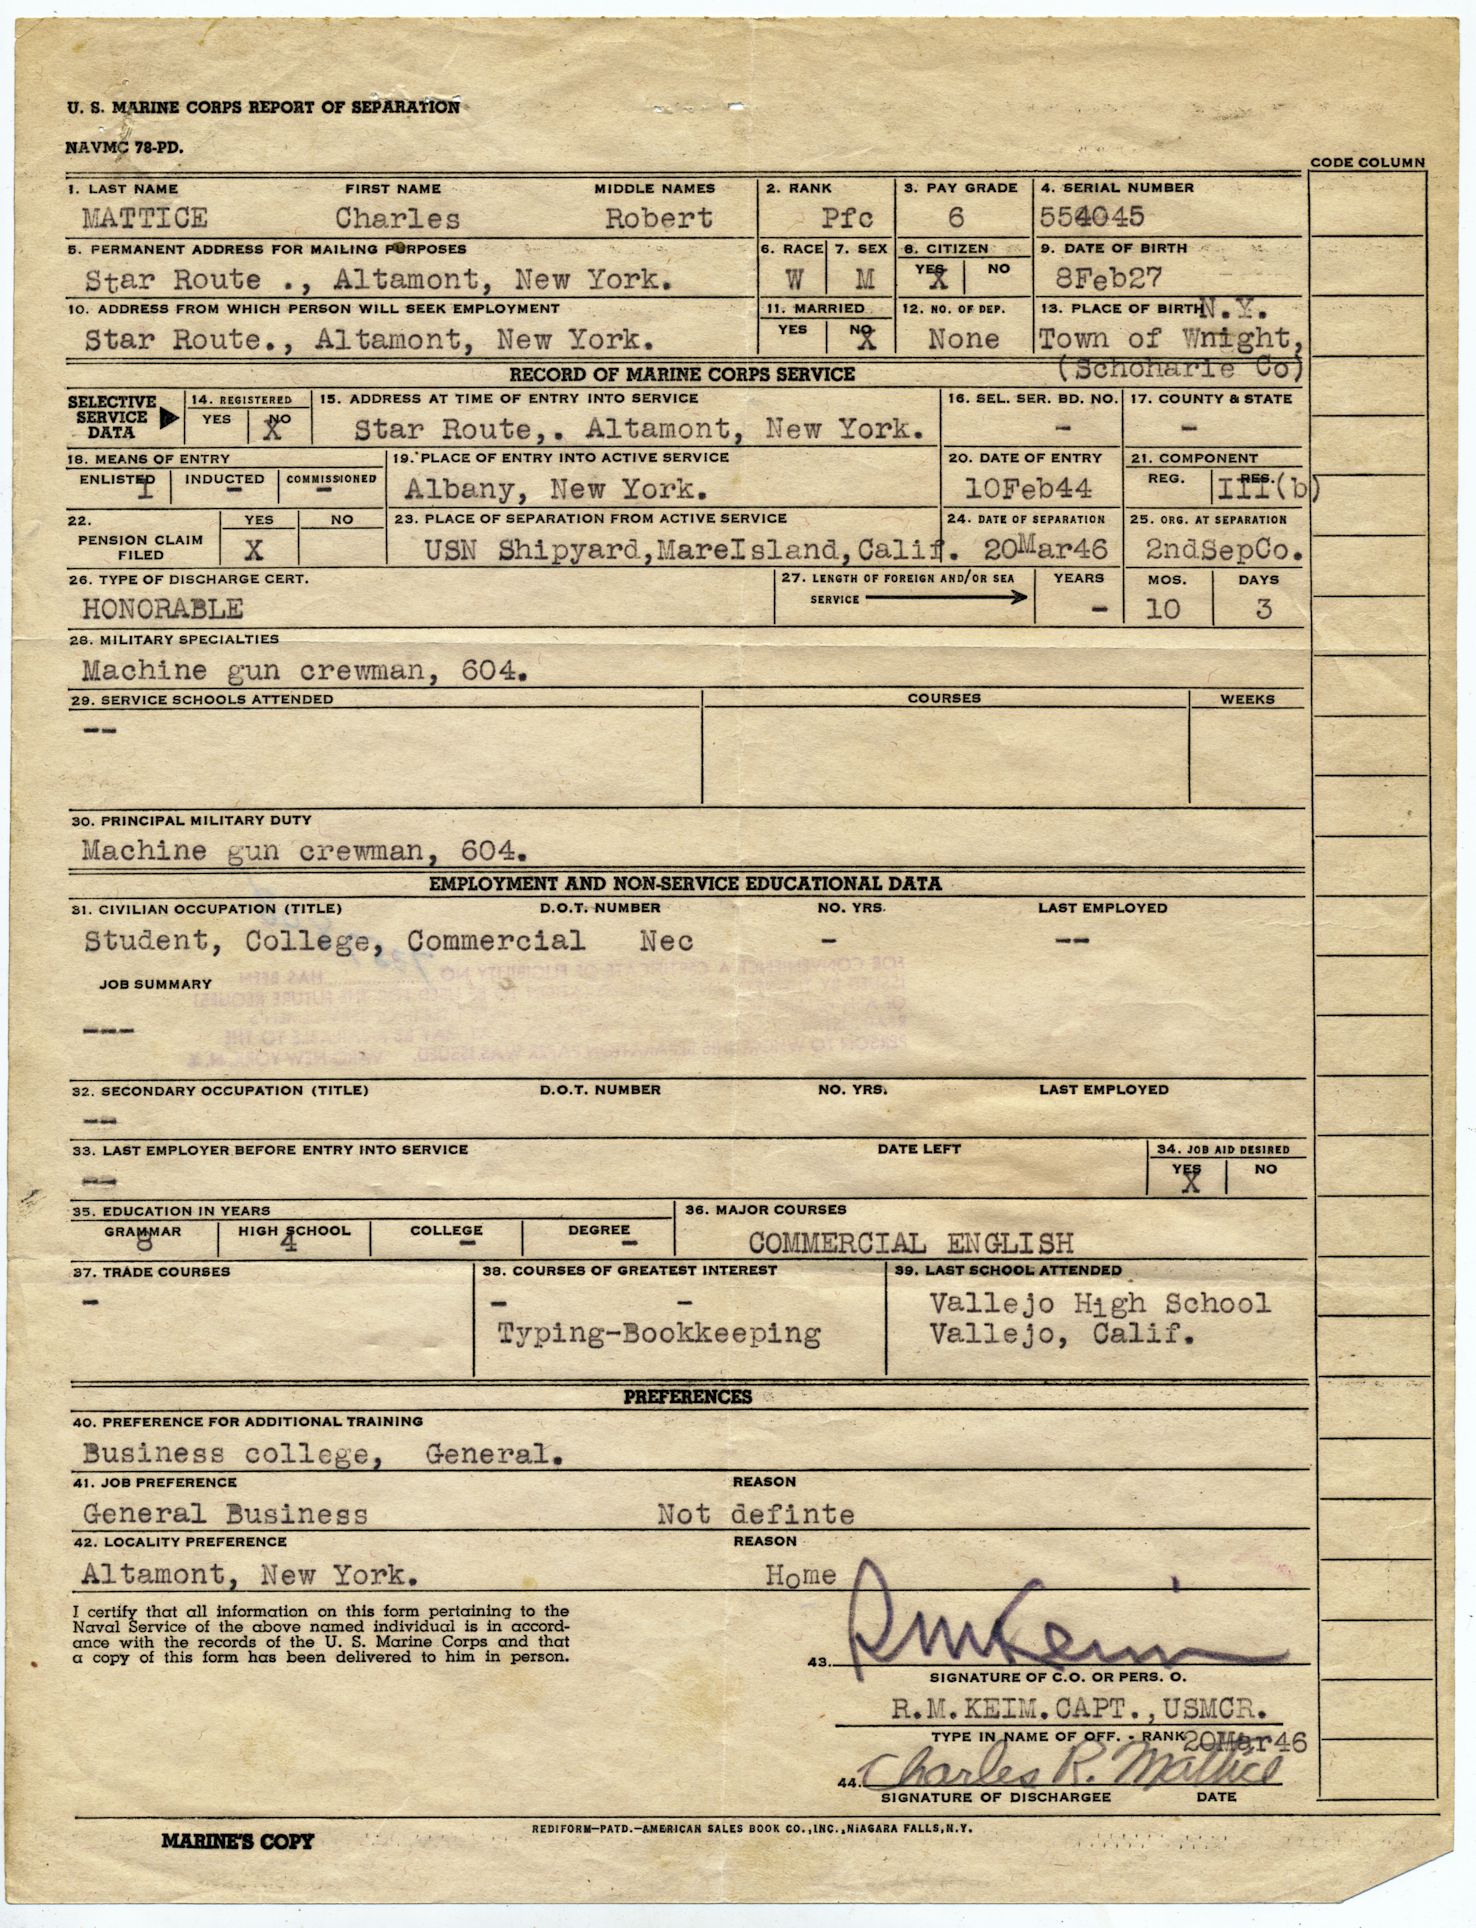 U. S. MARINE CORPS REPORT OF SEPARATION
NAVMC 78-PD.
CODE COLUMN
1. LAST NAME FIRST NAME MIDDLE NAMES 2. RANK 3. PAY GRADE 4. SERIAL NUMBER
MATTICE Charles Robert Pfc 6 554045
5. PERMANENT ADDRESS FOR MAILING PURPOSES 6. RACE 7. SEX 8. CITIZEN 9. DATE OF BIRTH
YES NO
Star Route ., Altamont, New York. W M X 8Feb27
10. ADDRESS FROM WHICH PERSON WILL SEEK EMPLOYMENT 11. MARRIED 12. NO. OF DEP. 13. PLACE OF BIRTH N.Y.
YES NO
Star Route., Altamont, New York. X None Town of Wnight,
(Schoharie Co)
RECORD OF MARINE CORPS SERVICE
SELECTIVE SERVICE DATA 14. REGISTERED 15. ADDRESS AT TIME OF ENTRY INTO SERVICE 16. SEL. SER. BD. NO. 17. COUNTY & STATE
YES NO
X Star Route,. Altamont, New York. - -
18. MEANS OF ENTRY 19. PLACE OF ENTRY INTO ACTIVE SERVICE 20. DATE OF ENTRY 21. COMPONENT
ENLISTED INDUCTED COMMISSIONED REG. RES.
1 - - Albany, New York. 10Feb44 III(b)
22. YES NO 23. PLACE OF SEPARATION FROM ACTIVE SERVICE 24. DATE OF SEPARATION 25. ORG. AT SEPARATION
PENSION CLAIM FILED X USN Shipyard,MareIsland,Calif. 20Mar46 2ndSepCo.
26. TYPE OF DISCHARGE CERT. 27. LENGTH OF FOREIGN AND/OR SEA SERVICE YEARS MOS. DAYS
HONORABLE - 10 3
28. MILITARY SPECIALTIES
Machine gun crewman, 604.
29. SERVICE SCHOOLS ATTENDED COURSES WEEKS
--
30. PRINCIPAL MILITARY DUTY
Machine gun crewman, 604.
EMPLOYMENT AND NON-SERVICE EDUCATIONAL DATA
31. CIVILIAN OCCUPATION (TITLE) D.O.T. NUMBER NO. YRS. LAST EMPLOYED
Student, College, Commercial Nec - --
JOB SUMMARY
---
32. SECONDARY OCCUPATION (TITLE) D.O.T. NUMBER NO. YRS. LAST EMPLOYED
--
33. LAST EMPLOYER BEFORE ENTRY INTO SERVICE DATE LEFT 34. JOB AID DESIRED
YES NO
-- X
35. EDUCATION IN YEARS 36. MAJOR COURSES
GRAMMAR HIGH SCHOOL COLLEGE DEGREE
8 4 - - COMMERCIAL ENGLISH
37. TRADE COURSES 38. COURSES OF GREATEST INTEREST 39. LAST SCHOOL ATTENDED
- - - Vallejo High School
Typing-Bookkeeping Vallejo, Calif.
PREFERENCES
40. PREFERENCE FOR ADDITIONAL TRAINING
Business college, General.
41. JOB PREFERENCE REASON
General Business Not definte
42. LOCALITY PREFERENCE REASON
Altamont, New York. Home
I certify that all information on this form pertaining to the
Naval Service of the above named individual is in accord-
ance with the records of the U. S. Marine Corps and that
a copy of this form has been delivered to him in person.
43. RM Keim
SIGNATURE OF C.O. OR PERS. O.
R.M.KEIM.CAPT.,USMCR.
TYPE IN NAME OF OFF. - RANK 20Mar46
44. Charles R. Mattice
SIGNATURE OF DISCHARGEE DATE
REDIFORM—PATD.—AMERICAN SALES BOOK CO.,INC.,NIAGARA FALLS,N.Y.
MARINE'S COPY